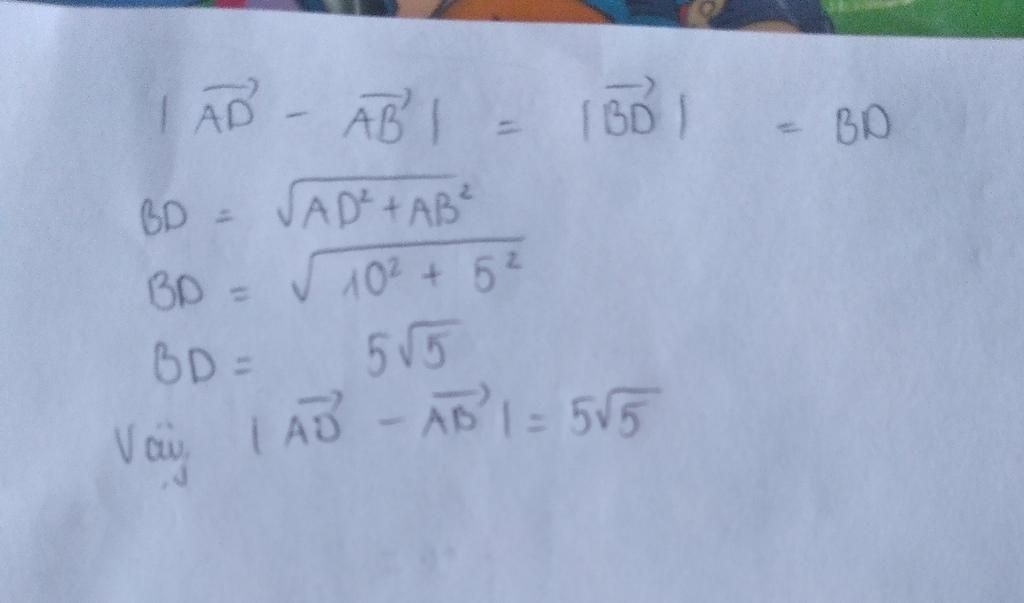 |\overrightarrow{AD} - \overrightarrow{AB}| = |\overrightarrow{BD}| = BD
BD = √(AD² + AB²)
BD = √(10² + 5²)
BD = 5√5
Vậy |\overrightarrow{AD} - \overrightarrow{AB}| = 5√5